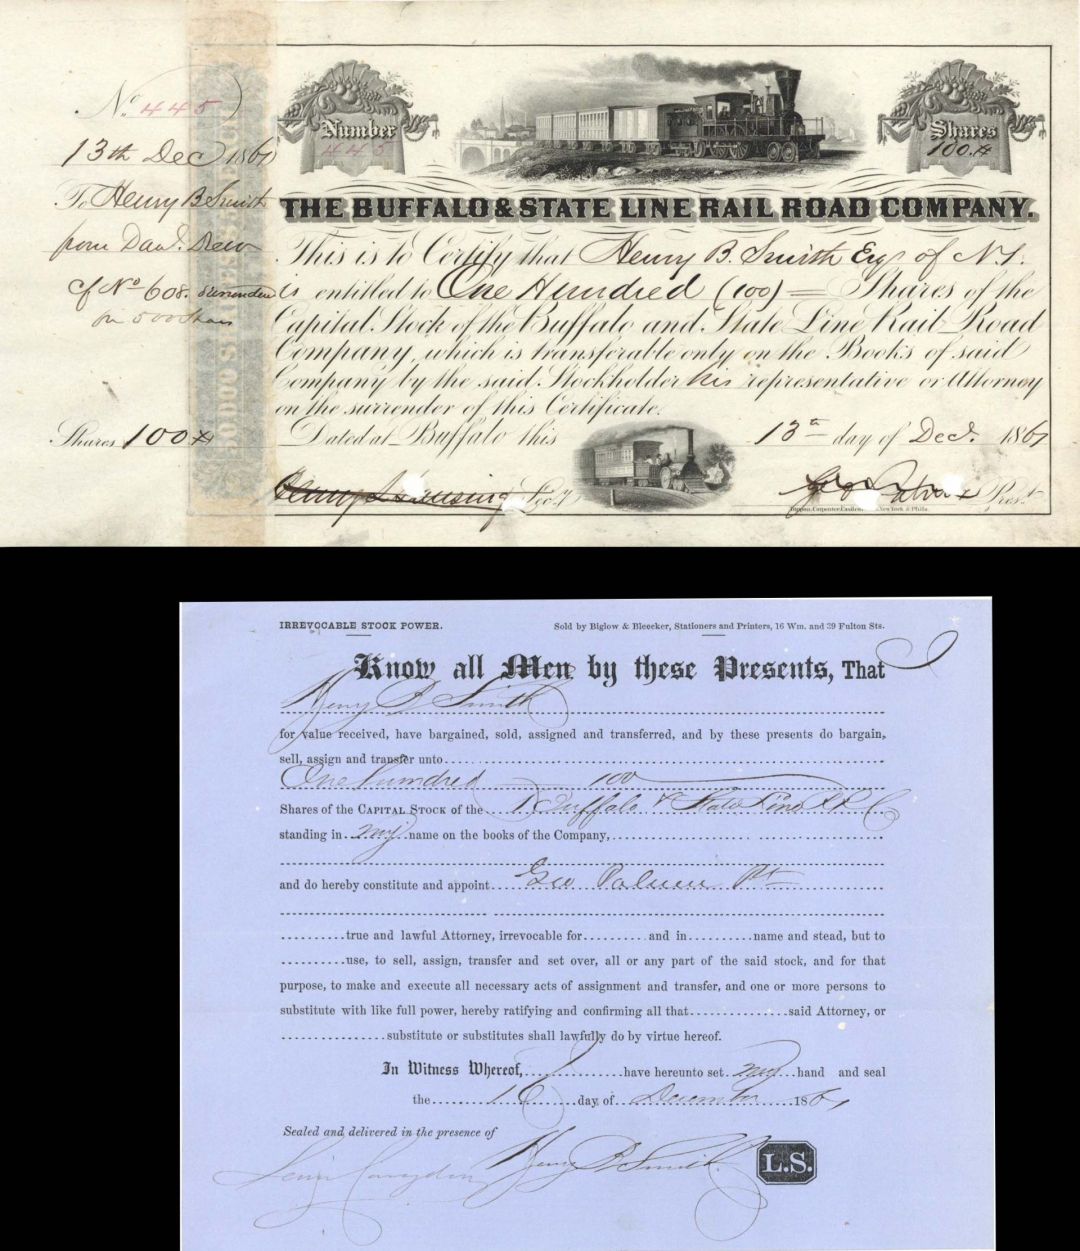 No. 445
13th Dec 1861
To Henry B Smith
from Danl. Drew
Cf No 608. surrendered
for 500 Shares
Shares 100
Number
445
Shares
100.
THE BUFFALO & STATE LINE RAIL ROAD COMPANY.
This is to Certify that Henry B. Smith Esq of N.Y.
is entitled to One Hundred (100) = Shares of the
Capital Stock of the Buffalo and State Line Rail Road
Company, which is transferable only on the Books of said
Company by the said Stockholder his representative or Attorney
on the surrender of this Certificate.
Dated at Buffalo this 13th day of Decr. 1861
Secy. Geo Palmer Prest.
IRREVOCABLE STOCK POWER.
Sold by Biglow & Bleecker, Stationers and Printers, 16 Wm. and 39 Fulton Sts.
Know all Men by these Presents, That
Henry B Smith
for value received, have bargained, sold, assigned and transferred, and by these presents do bargain,
sell, assign and transfer unto
One hundred 100
Shares of the CAPITAL STOCK of the Buffalo & State Line RR Co
standing in my name on the books of the Company,
and do hereby constitute and appoint Geo Palmer Pt
true and lawful Attorney, irrevocable for and in name and stead, but to
use, to sell, assign, transfer and set over, all or any part of the said stock, and for that
purpose, to make and execute all necessary acts of assignment and transfer, and one or more persons to
substitute with like full power, hereby ratifying and confirming all that said Attorney, or
substitute or substitutes shall lawfully do by virtue hereof.
In Witness Whereof, I have hereunto set my hand and seal
the day of December 186
Sealed and delivered in the presence of
Henry B Smith
L.S.